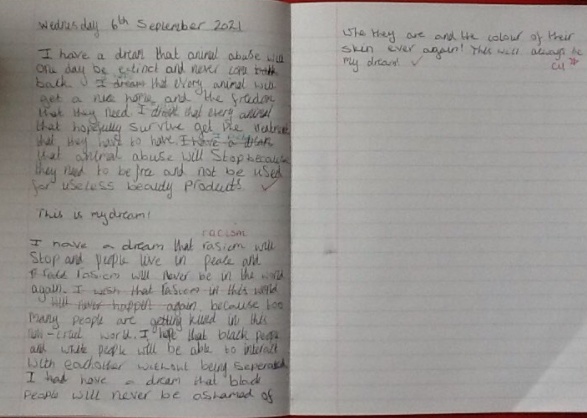 Wednesday 6th September 2021
I have a dream that animal abuse will
one day be extinct and never come
back I dream that every animal will
get a nice home and the freedom
that they need I dream that every animal
that hopefully survive get the
that they have to have. I have a dream
that animal abuse will Stop because
they need to be free and not be used
for useless beauty Products.
This is my dream!
racism
I have a dream that rasicm will
Stop and people live in peace and
rasicm will never be in the world
again. I wish that rasicm in this world
will never happen again. because too
many people are getting killed in this
cruel world. I hope that black people
and white people will be able to interact
with eachother without being seperated
I had have a dream that black
people will never be ashamed of
who they are and the colour of their
skin ever again! This will always be
my dream!